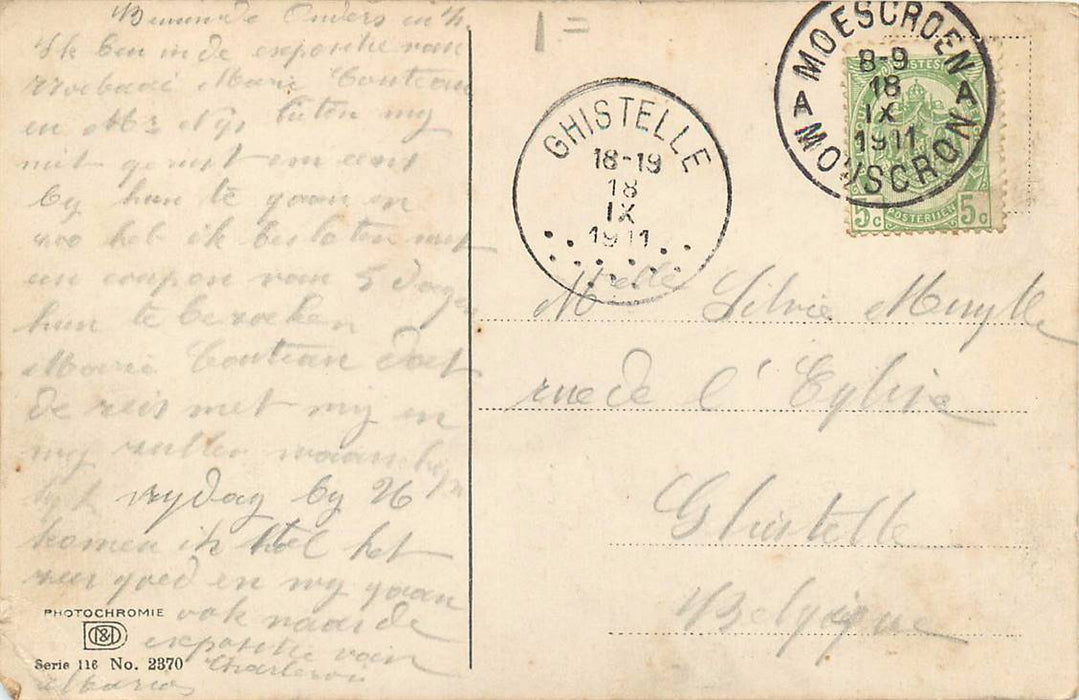 Beminde Ouders en Z.
Ik ben in de expositie van
Marie Couteau
en Mr
met gerust om eens
by hun te gaan en
zoo heb ik besloten met
een coupon van 5 dagen
hun te bezoeken
Marie Couteau doet
de reis met my en
my zullen
vrydag by
komen ik het
zeer goed en my gaan
ook naar de
expositie van
Charleroi
PHOTOCHROMIE
Serie 116 No. 2370
1=
GHISTELLE
18-19
18
IX
1911
MOESCROEN
A A
8-9
18
IX
1911
MOUSCRON
POSTES
5c POSTERIJEN 5c
Melle Silvie Muylle
rue de l'Eglise
Ghistelle
Belgique